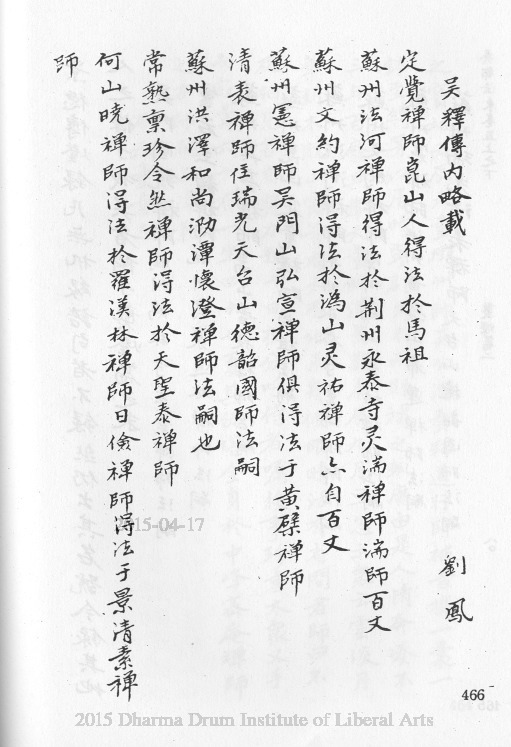 吴釋傳內略載
劉鳳
定覺禪師崑山人得法於馬祖
蘇州法河禪師得法於荆州永泰寺灵湍禅師湍師百丈
蘇州文約禅師得法於溈山灵祐禅師亦自百丈
蘇州憲禅師吴門山弘宣禅師俱得法于黄檗禅師
清表禅師住瑞光天台山德韶國師法嗣
蘇州洪澤和尚泐潭懷澄禅師法嗣也
常熟禀珍令然禅師得法於天聖泰禅師
何山曉禅師得法於羅漢林禅師日儉禅師得法于景清素禅
師
466
2015-04-17
2015 Dharma Drum Institute of Liberal Arts